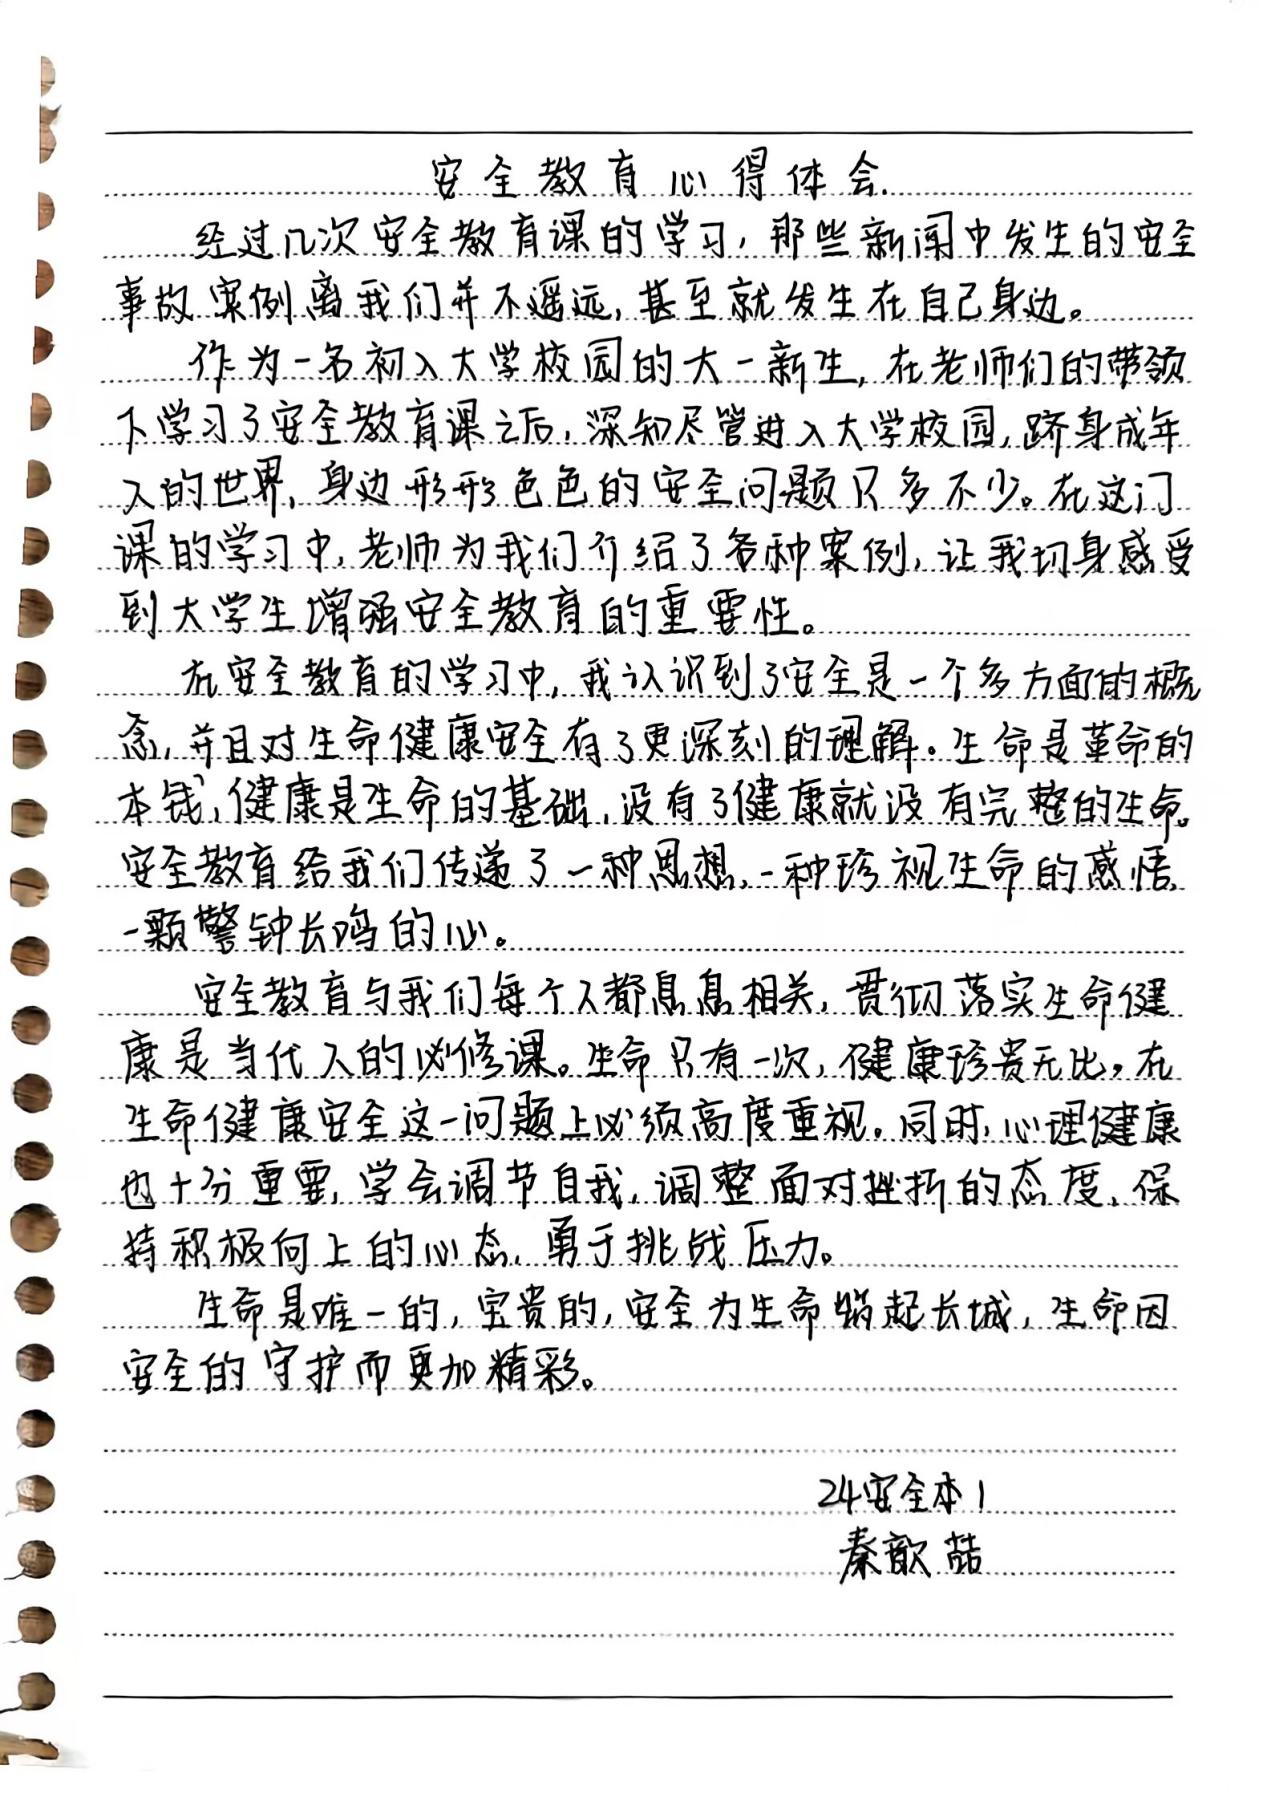 安全教育心得体会.
经过几次安全教育课的学习，那些新闻中发生的安全
事故案例离我们并不遥远，甚至就发生在自己身边。
作为一名初入大学校园的大一新生，在老师们的带领
下学习了安全教育课之后，深知尽管进入大学校园，跻身成年
人的世界，身边形形色色的安全问题只多不少。在这门
课的学习中，老师为我们介绍了各种案例，让我切身感受
到大学生增强安全教育的重要性。
在安全教育的学习中，我认识到了安全是一个多方面的概
念，并且对生命健康安全有了更深刻的理解。生命是革命的
本钱，健康是生命的基础，没有了健康就没有完整的生命。
安全教育给我们传递了一种思想，一种珍视生命的感悟，
一颗警钟长鸣的心。
安全教育与我们每个人都息息相关，贯彻落实生命健
康是当代人的必修课。生命只有一次，健康珍贵无比。在
生命健康安全这一问题上必须高度重视。同时，心理健康
也十分重要，学会调节自我，调整面对挫折的态度，保
持积极向上的心态，勇于挑战压力。
生命是唯一的，宝贵的，安全为生命筑起长城，生命因
安全的守护而更加精彩。
24安全本1
秦歆喆